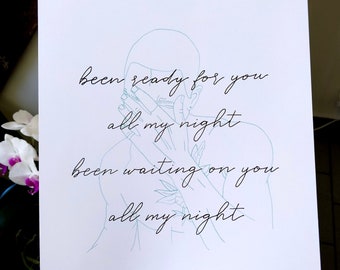 been ready for you
all my night
been waiting on you
all my night